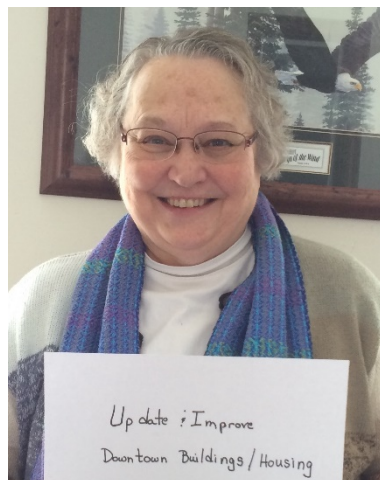 Update & Improve
Downtown Buildings/Housing